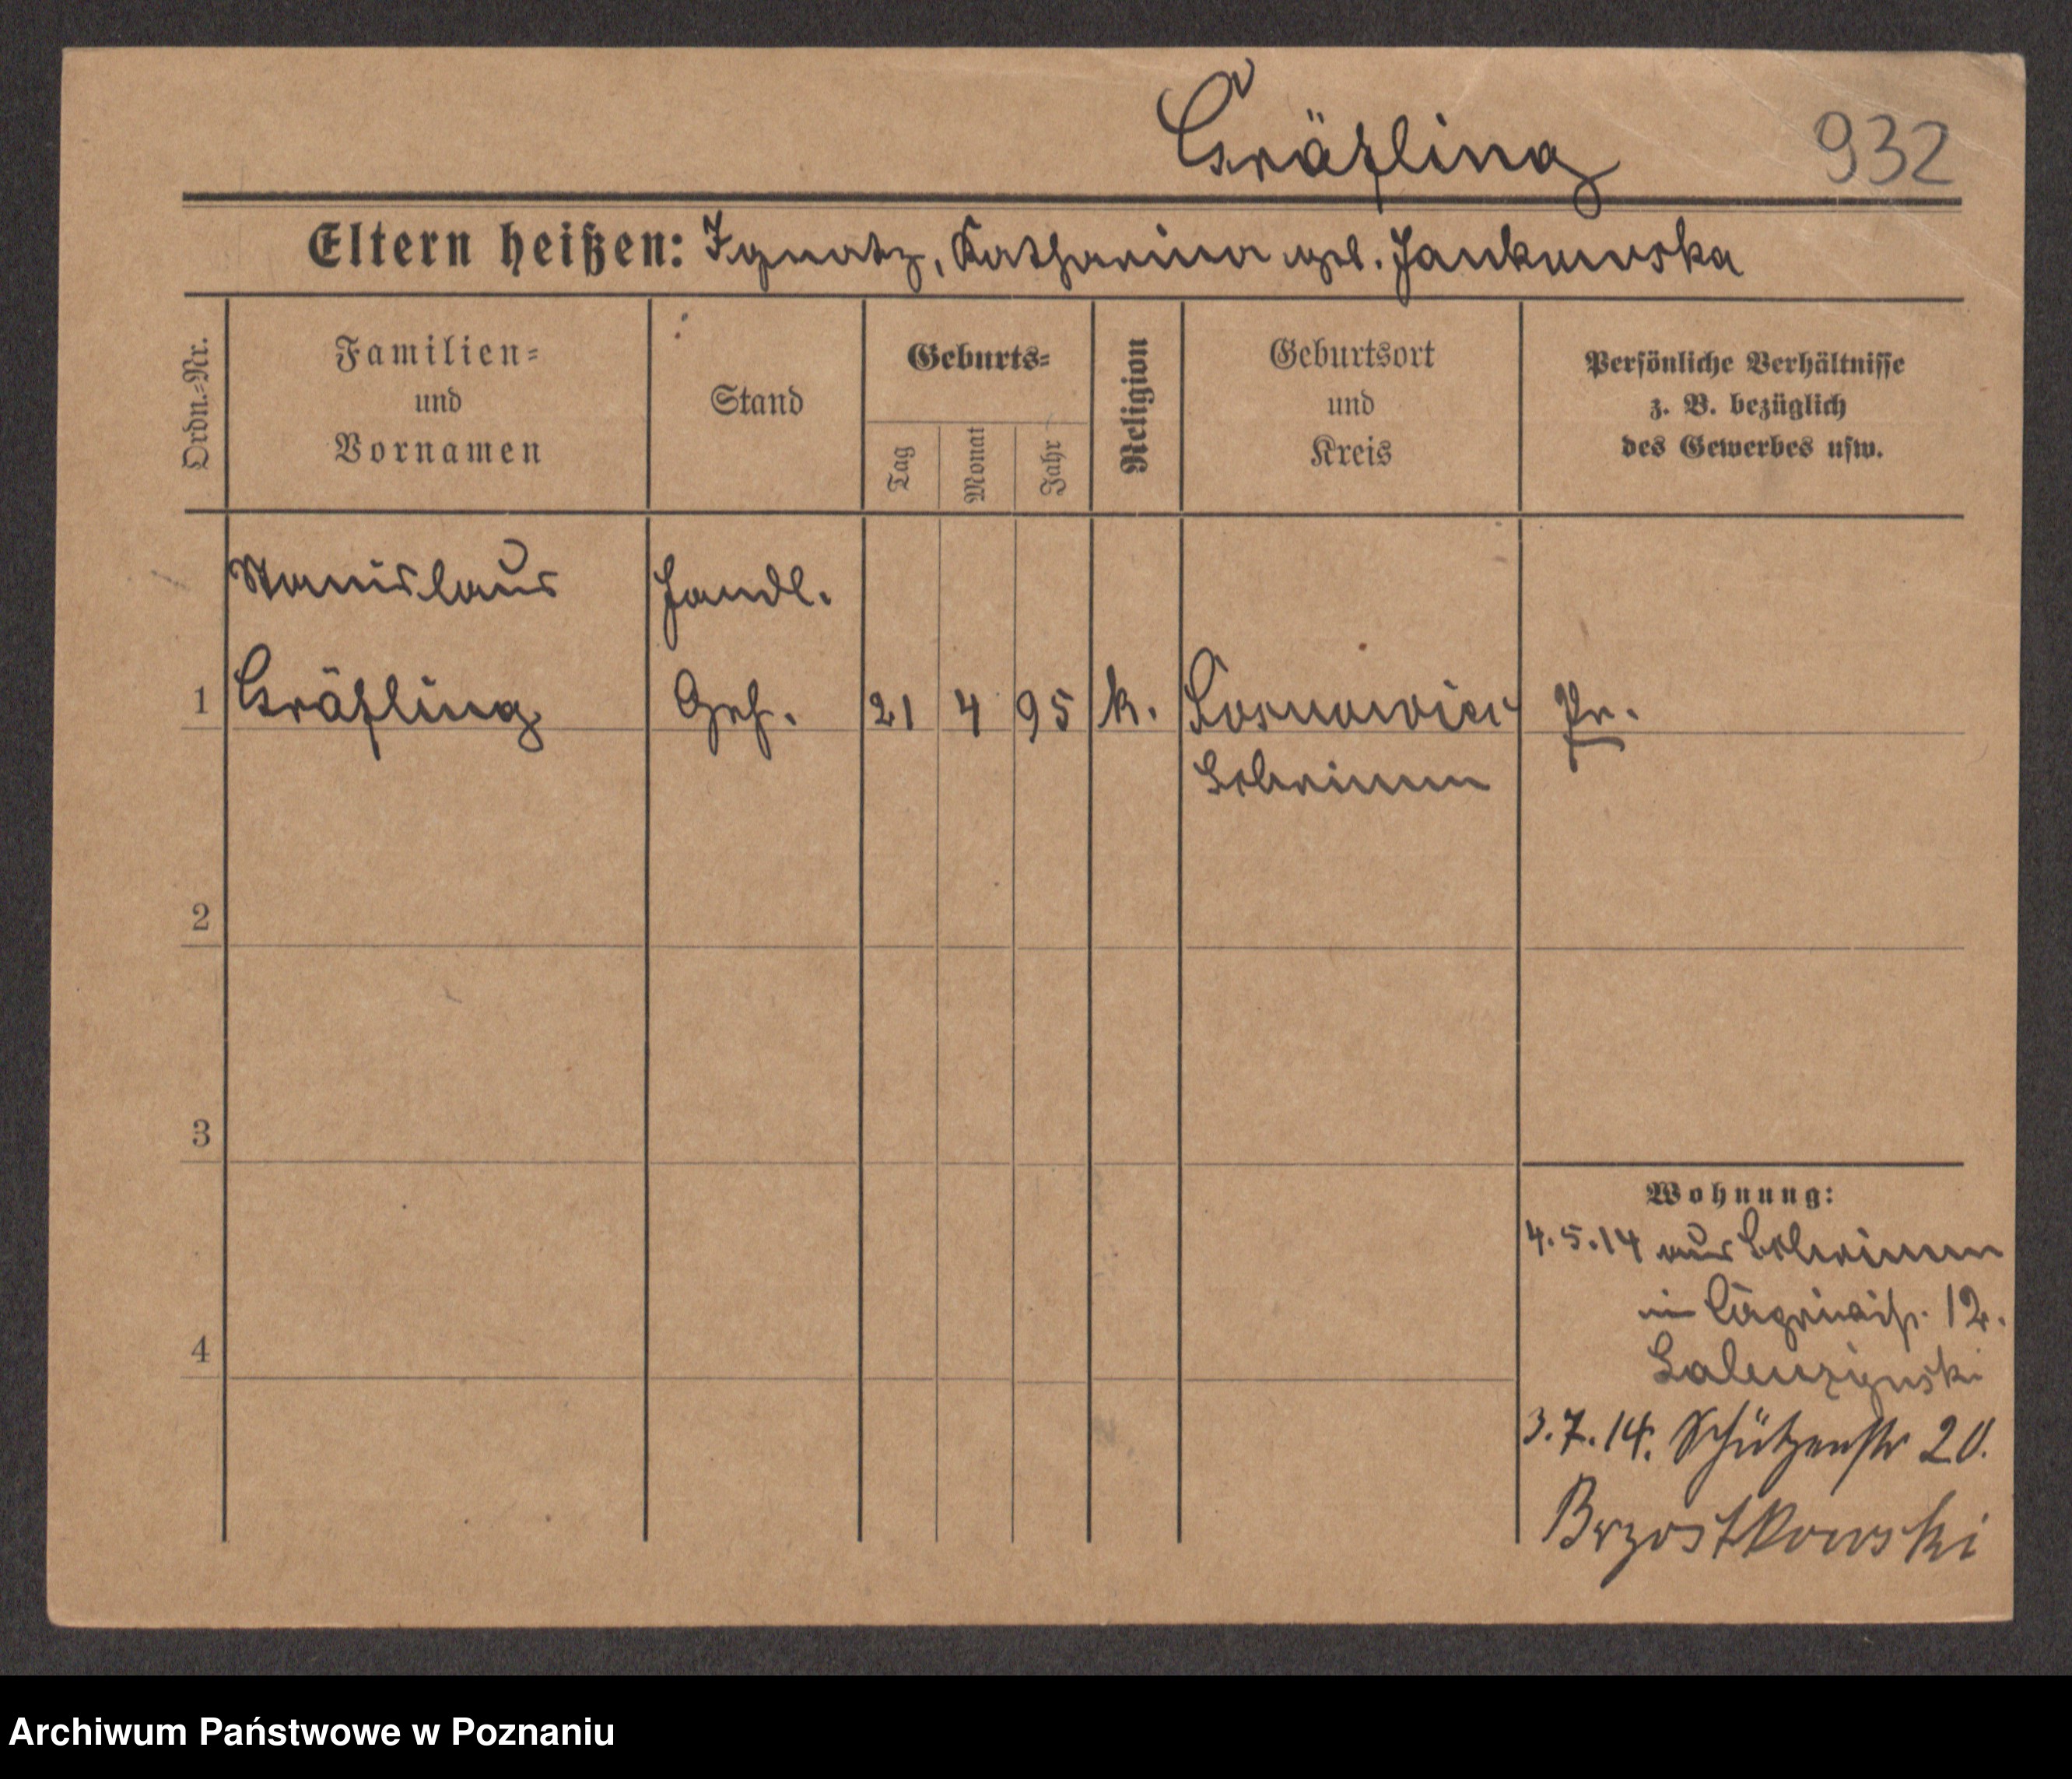 Gräfling 932
Eltern heißen: Ignatz, Katharina geb. Jankowska
Ordn.=Nr.
Familien=
und
Vornamen
Stand
Geburts=
Tag
Monat
Jahr
Religion
Geburtsort
und
Kreis
Persönliche Verhältnisse
z. B. bezüglich
des Gewerbes usw.
Stanislaus Handl.
1 Gräfling Geh. 21 4 95 k. Sosnowiec Pr.
Schrimm
2
3
4
Wohnung:
4.5.14 aus Schrimm
in 12.
3.7.14. Schützenstr 20.
Brzostkowski
Archiwum Państwowe w Poznaniu